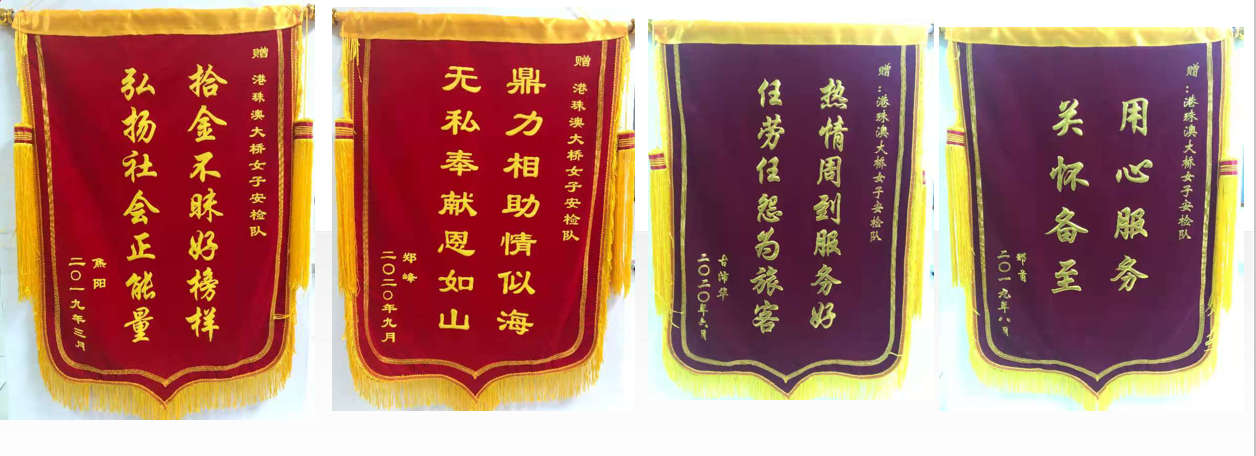 赠 港珠澳大桥女子安检队
拾金不昧好榜样
弘扬社会正能量
焦阳
二〇一九年三月
赠 港珠澳大桥女子安检队
鼎力相助情似海
无私奉献恩如山
郑峰
二〇二〇年九月
赠:港珠澳大桥女子安检队
热情周到服务好
任劳任怨为旅客
二〇二〇年六月
赠:港珠澳大桥女子安检队
用心服务
关怀备至
二〇一九年八月